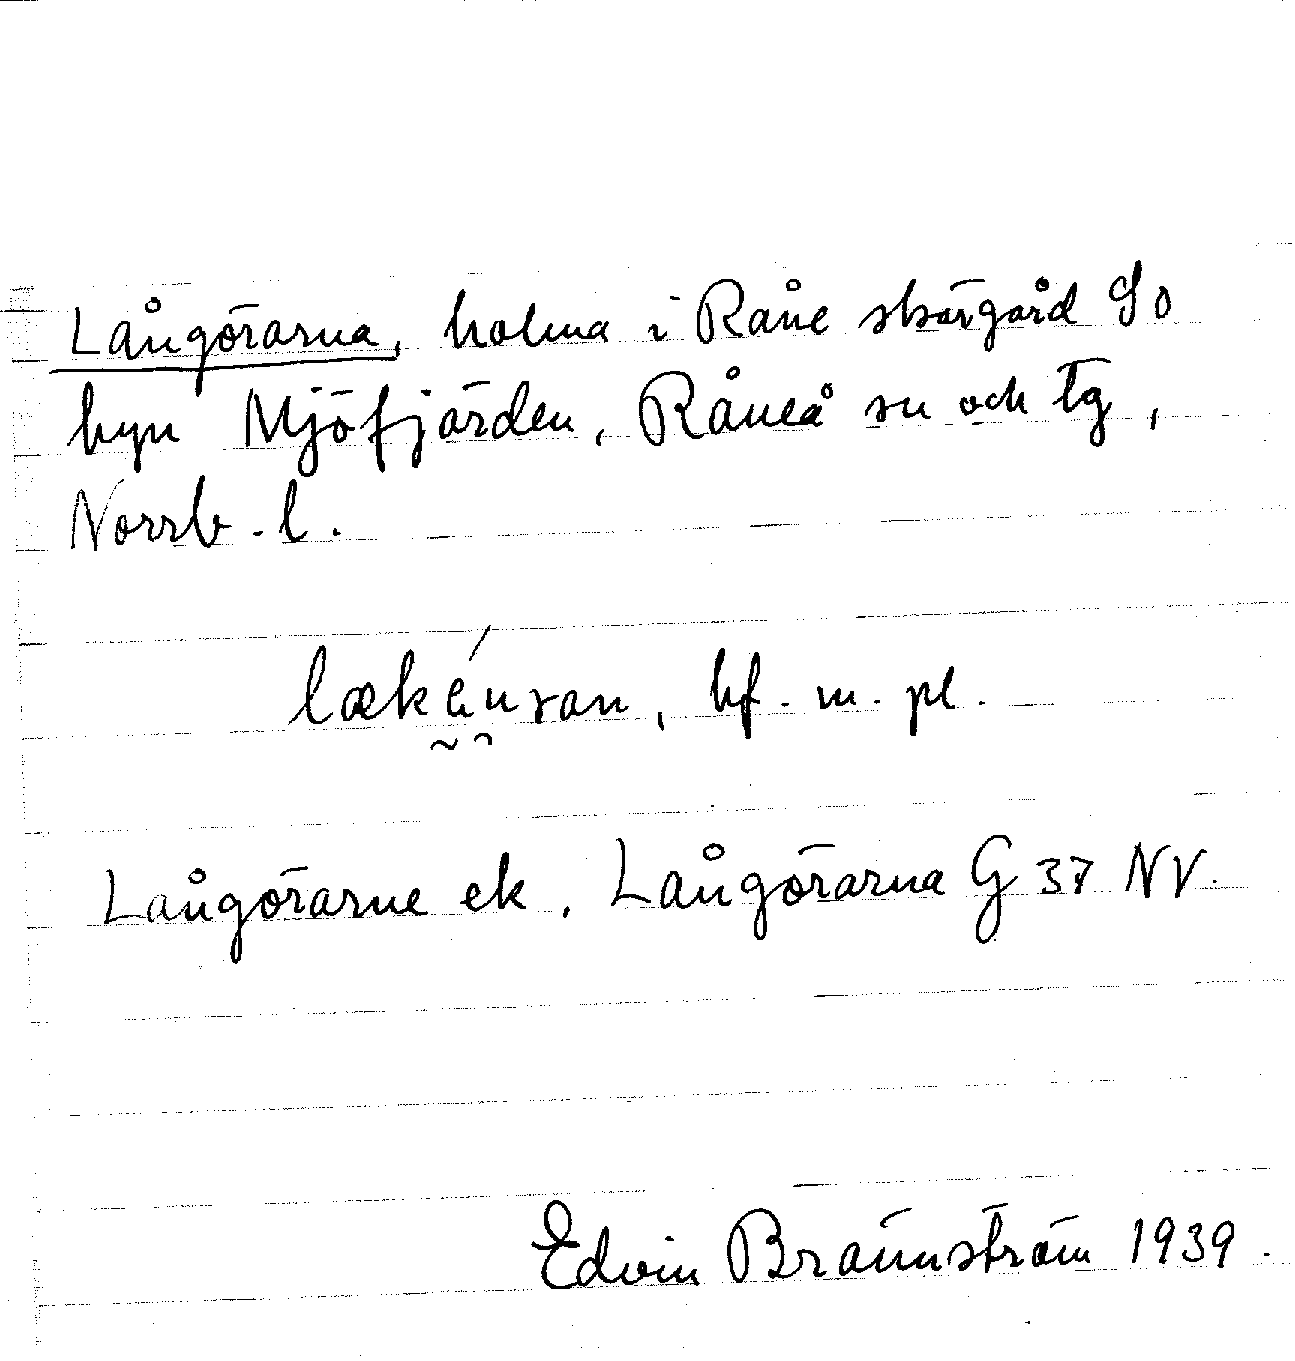 Långörarna, holma i Råne skärgård SO
byn Mjöfjärden, Råneå sn och tg,
Norrb. l.
bf. m. pl.
Långörarne ek, Långörarna G 37 NV.
Edvin Brännström 1939.